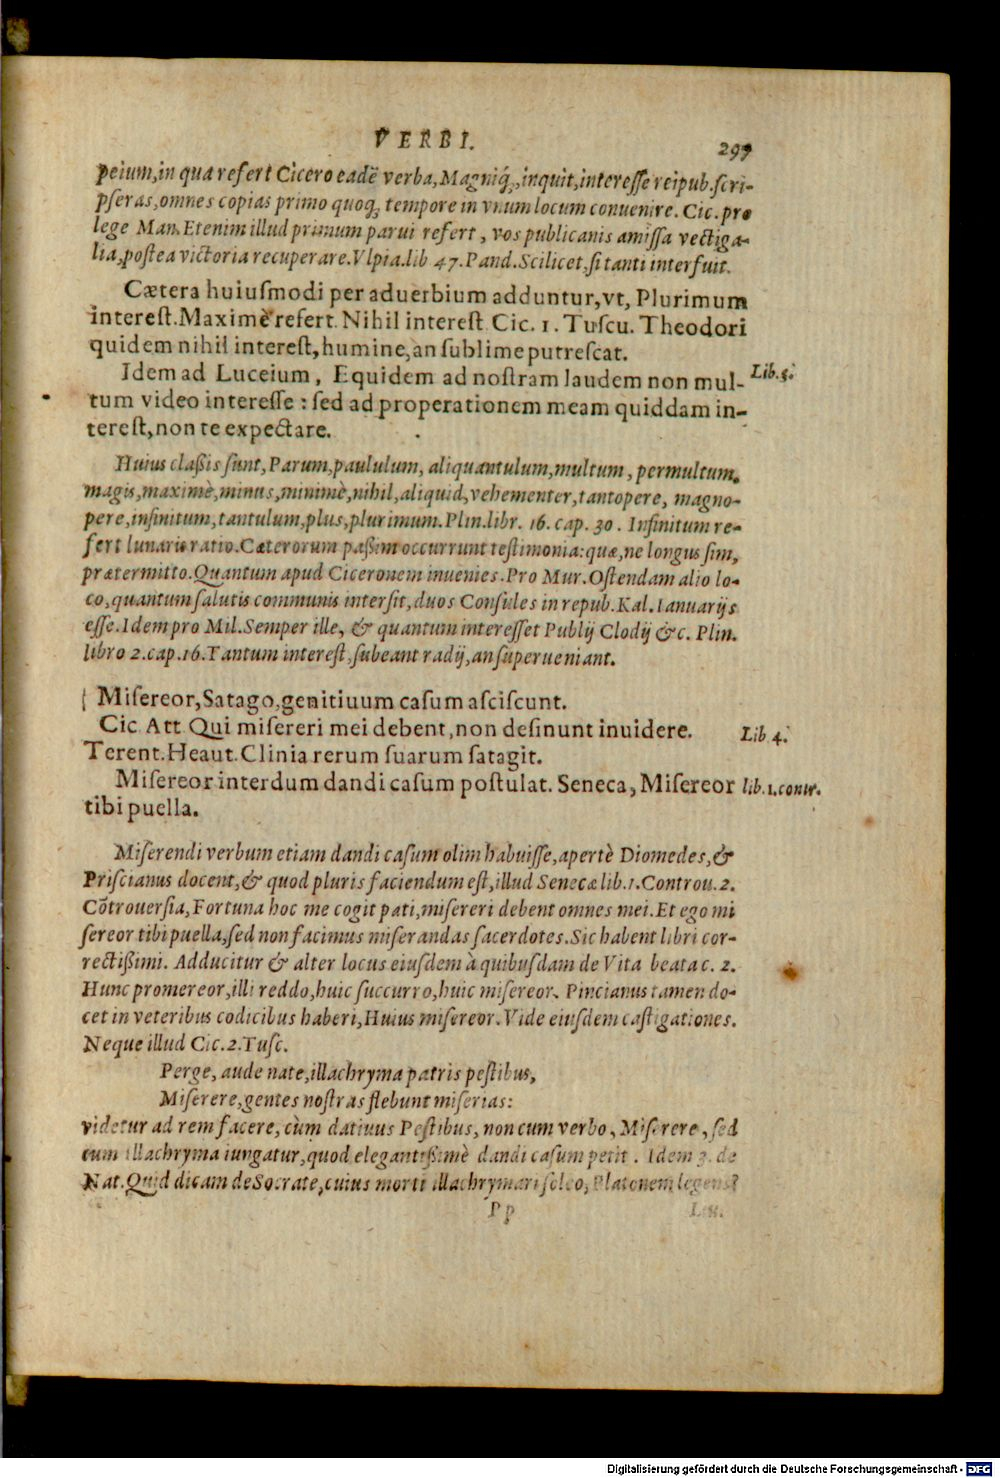 VERBI. 297
peium, in qua refert Cicero eadẽ verba, Magniq́;, inquit, interesse reipub. scri-
pseras, omnes copias primo quoq; tempore in vnum locum conuenire. Cic. pro
lege Man. Etenim illud primum parui refert, vos publicanis amissa vectiga-
lia, postea victoria recuperare. Vlpia. lib 47. Pand. Scilicet, si tanti interfuit.
Cætera huiusmodi per aduerbium adduntur, vt, Plurimum
interest. Maximè refert. Nihil interest Cic. 1. Tuscu. Theodori
quidem nihil interest, humine, an sublime putrescat.
Idem ad Luceium, Equidem ad nostram laudem non mul- Lib. 5.
tum video interesse: sed ad properationem meam quiddam in-
terest, non te expectare.
Huius claßis sunt, Parum, paululum, aliquantulum, multum, permultum,
magis, maximè, minus, minimè, nihil, aliquid, vehementer, tantopere, magno-
pere, infinitum, tantulum, plus, plurimum. Plin. libr. 16. cap. 30. Infinitum re-
fert lunaris ratio. Cæterorum paßim occurrunt testimonia: quæ, ne longus sim,
prætermitto. Quantum apud Ciceronem inuenies. Pro Mur. Ostendam alio lo-
co, quantum salutis communis intersit, duos Consules in repub. Kal. Ianuarijs
esse. Idem pro Mil. Semper ille, & quantum interesset Publij Clodij &c. Plin.
libro 2. cap. 16. Tantum interest, subeant radij, an superueniant.
Misereor, Satago, genitiuum casum asciscunt.
Cic Att Qui misereri mei debent, non desinunt inuidere. Lib 4.
Terent. Heaut. Clinia rerum suarum satagit.
Misereor interdum dandi casum postulat. Seneca, Misereor lib. 1. contr.
tibi puella.
Miserendi verbum etiam dandi casum olim habuisse, apertè Diomedes, &
Priscianus docent, & quod pluris faciendum est, illud Senecæ lib. 1. Controu. 2.
Cõtrouersia, Fortuna hoc me cogit pati, misereri debent omnes mei. Et ego mi
sereor tibi puella, sed non facimus miserandas sacerdotes. Sic habent libri cor-
rectißimi. Adducitur & alter locus eiusdem à quibusdam de Vita beata c. 2.
Hunc promereor, illi reddo, huic succurro, huic misereor. Pincianus tamen do-
cet in veteribus codicibus haberi, Huius misereor. Vide eiusdem castigationes.
Neque illud Cic. 2. Tusc.
Perge, aude nate, illachryma patris pestibus,
Miserere, gentes nostras flebunt miserias:
videtur ad rem facere, cùm datiuus Pestibus, non cum verbo, Miserere, sed
cum illachryma iungatur, quod elegantißimè dandi casum petit. Idem 3. de
Nat. Quid dicam de Socrate, cuius morti illachrymari soleo, Platonem legens?
Pp
Digitalisierung gefördert durch die Deutsche Forschungsgemeinschaft - DFG